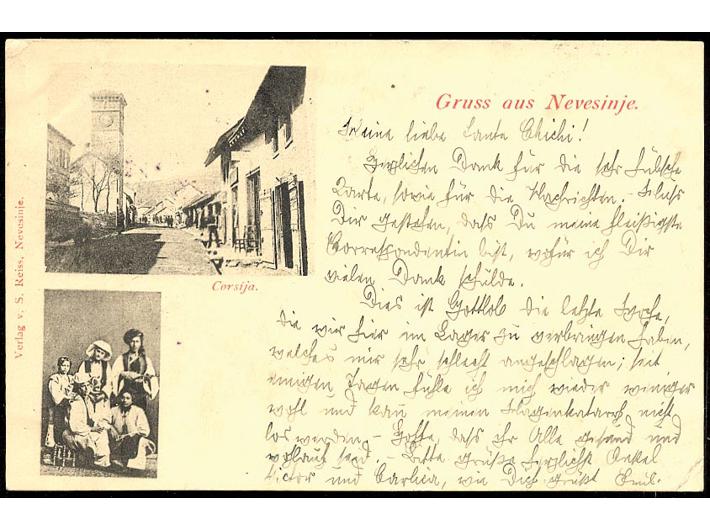 Gruss aus Nevesinje.
Meine liebe Tante Chichi!
Herzlichen Dank für die sehr hübsche
Karte, sowie für die Nachrichten. Muss
Dir gestehen, dass Du meine fleißigste
Correspondentin bist, wofür ich Dir
vielen Dank schulde.
Dies ist Gottlob die letzte Woche,
die wir hier im Lager zu verbringen haben,
welches mir sehr schlecht angeschlagen; seit
einigen Tagen fühle ich mich wieder weniger
wohl und kan meinen Magenkatarrh nicht
los werden. – Hoffe, dass Ihr Alle gesund und
wohlauf seid. – Bitte grüße herzlichst Onkel
Victor und Carlica, wie Dich grüßt Emil.
Corsija.
Verlag v. S. Reiss, Nevesinje.